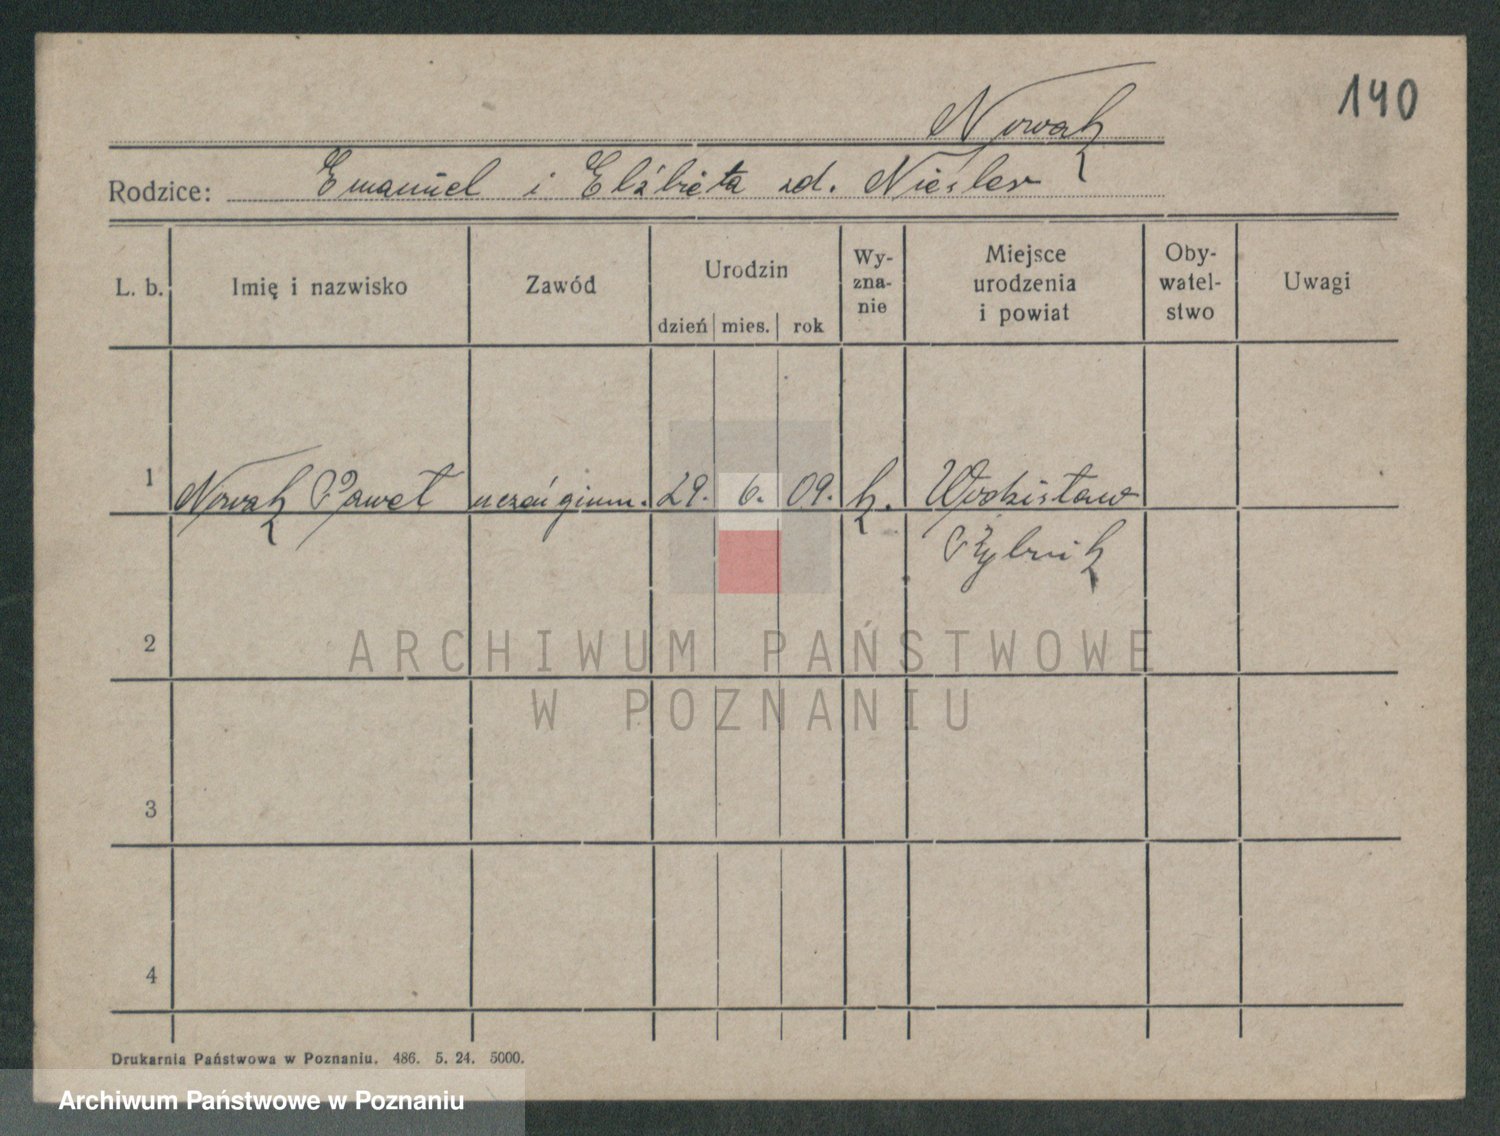 140
Nowak
Rodzice: Emanuel i Elżbieta zd. Niesler
L. b. Imię i nazwisko Zawód Urodzin dzień mies. rok Wy-zna-nie Miejsce urodzenia i powiat Oby-watel-stwo Uwagi
1 Nowak Paweł uczeń gimn. 29. 6. 09. k. Wodzisław
Rybnik
2
ARCHIWUM PAŃSTWOWE
W POZNANIU
3
4
Drukarnia Państwowa w Poznaniu. 486. 5. 24. 5000.
Archiwum Państwowe w Poznaniu